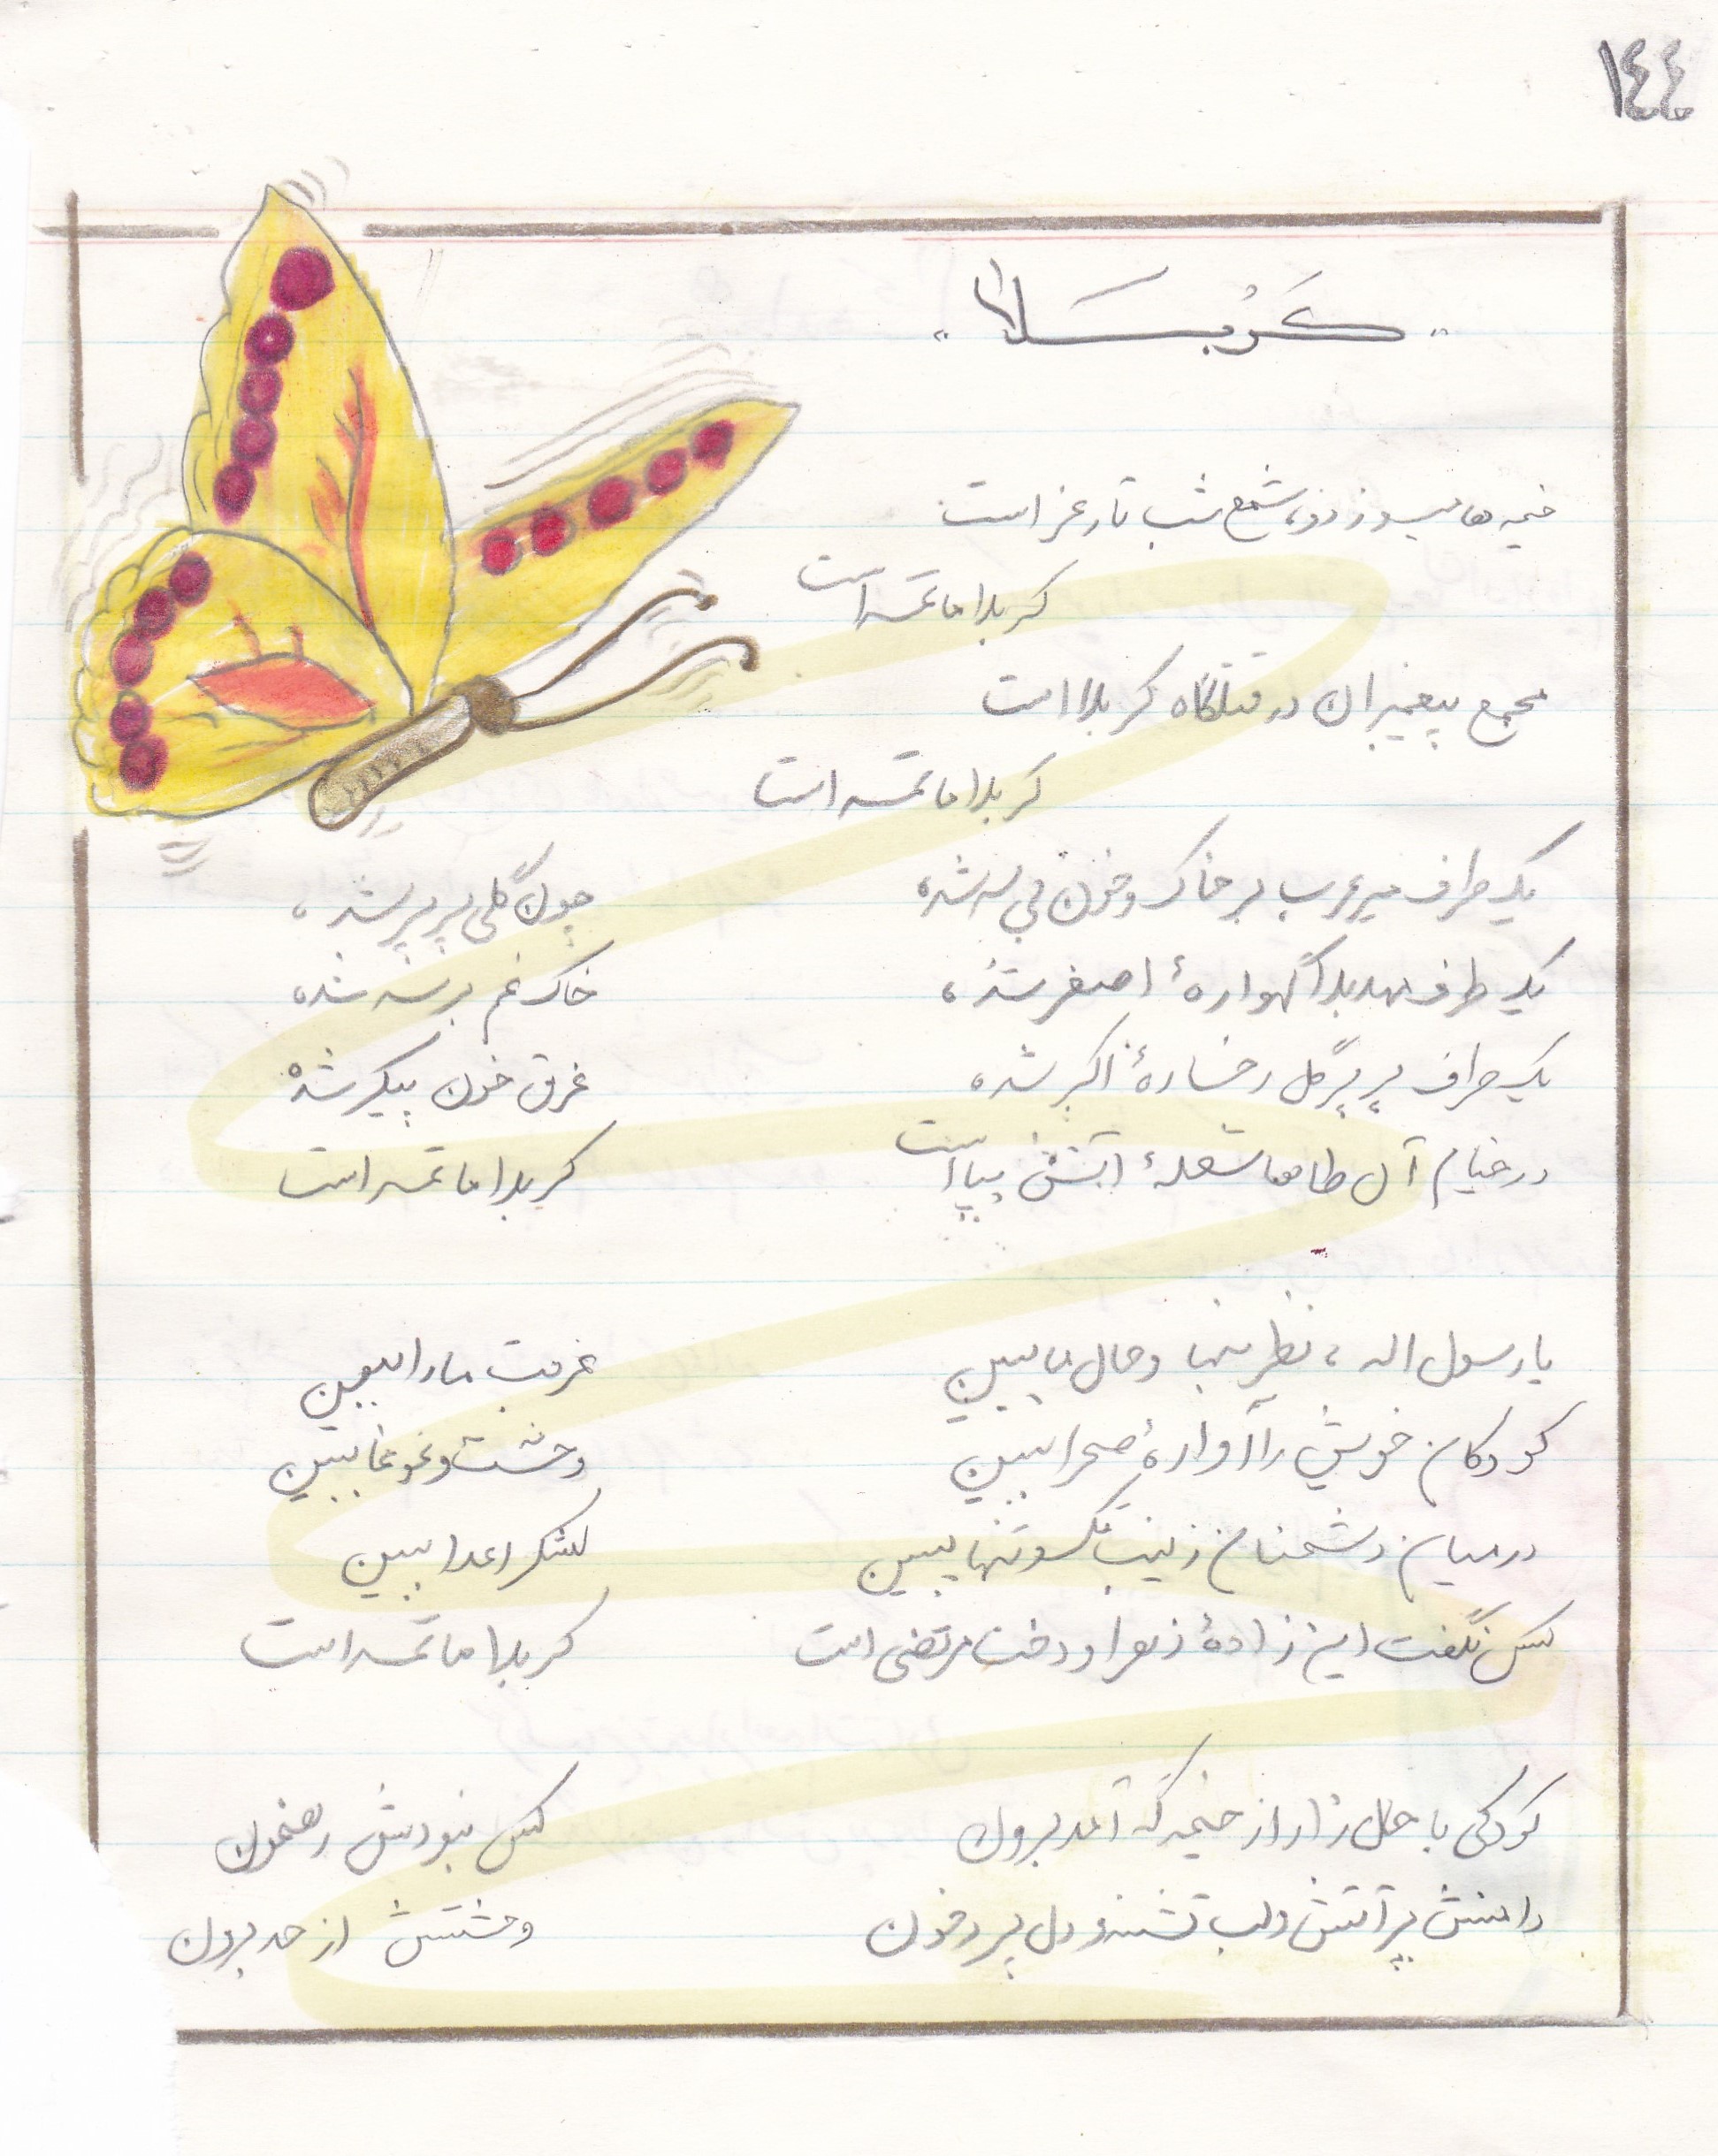 ١٤٤
" کربلا "
خیمه ها میسوزد و شمع شب تار عزا است
کربلا ماتمسرا است
مجمع پیغمبران در قتلگاه کربلا است
کربلا ماتمسرا است
یک طرف میر عرب بر خاک و خون بی سر شده چون گلی پرپر شده
یک طرف مهد بلا گهوارهٔ اصغر شده خاک غم بر سر شده
یک طرف پرپر گل رخسارهٔ اکبر شده غرق خون پیکر شده
در خیام آل طاها شعلهٔ آتش بپا است کربلا ماتمسرا است
یا رسول اله ، نظر بنما و حال ما ببین غربت ما را ببین
کودکان خویش را آوارهٔ صحرا ببین وحشت و غوغا ببین
در میان دشمنان زینب تک و تنها ببین لشکر اعدا ببین
کس نگفت این زادهٔ زهرا و دخت مرتضی است کربلا ماتمسرا است
کودکی با حال زار از خیمه گه آمد برون کس نبودش رهنمون
دامنش پر آتش و لب تشنه و دل پر ز خون وحشتش از حد برون